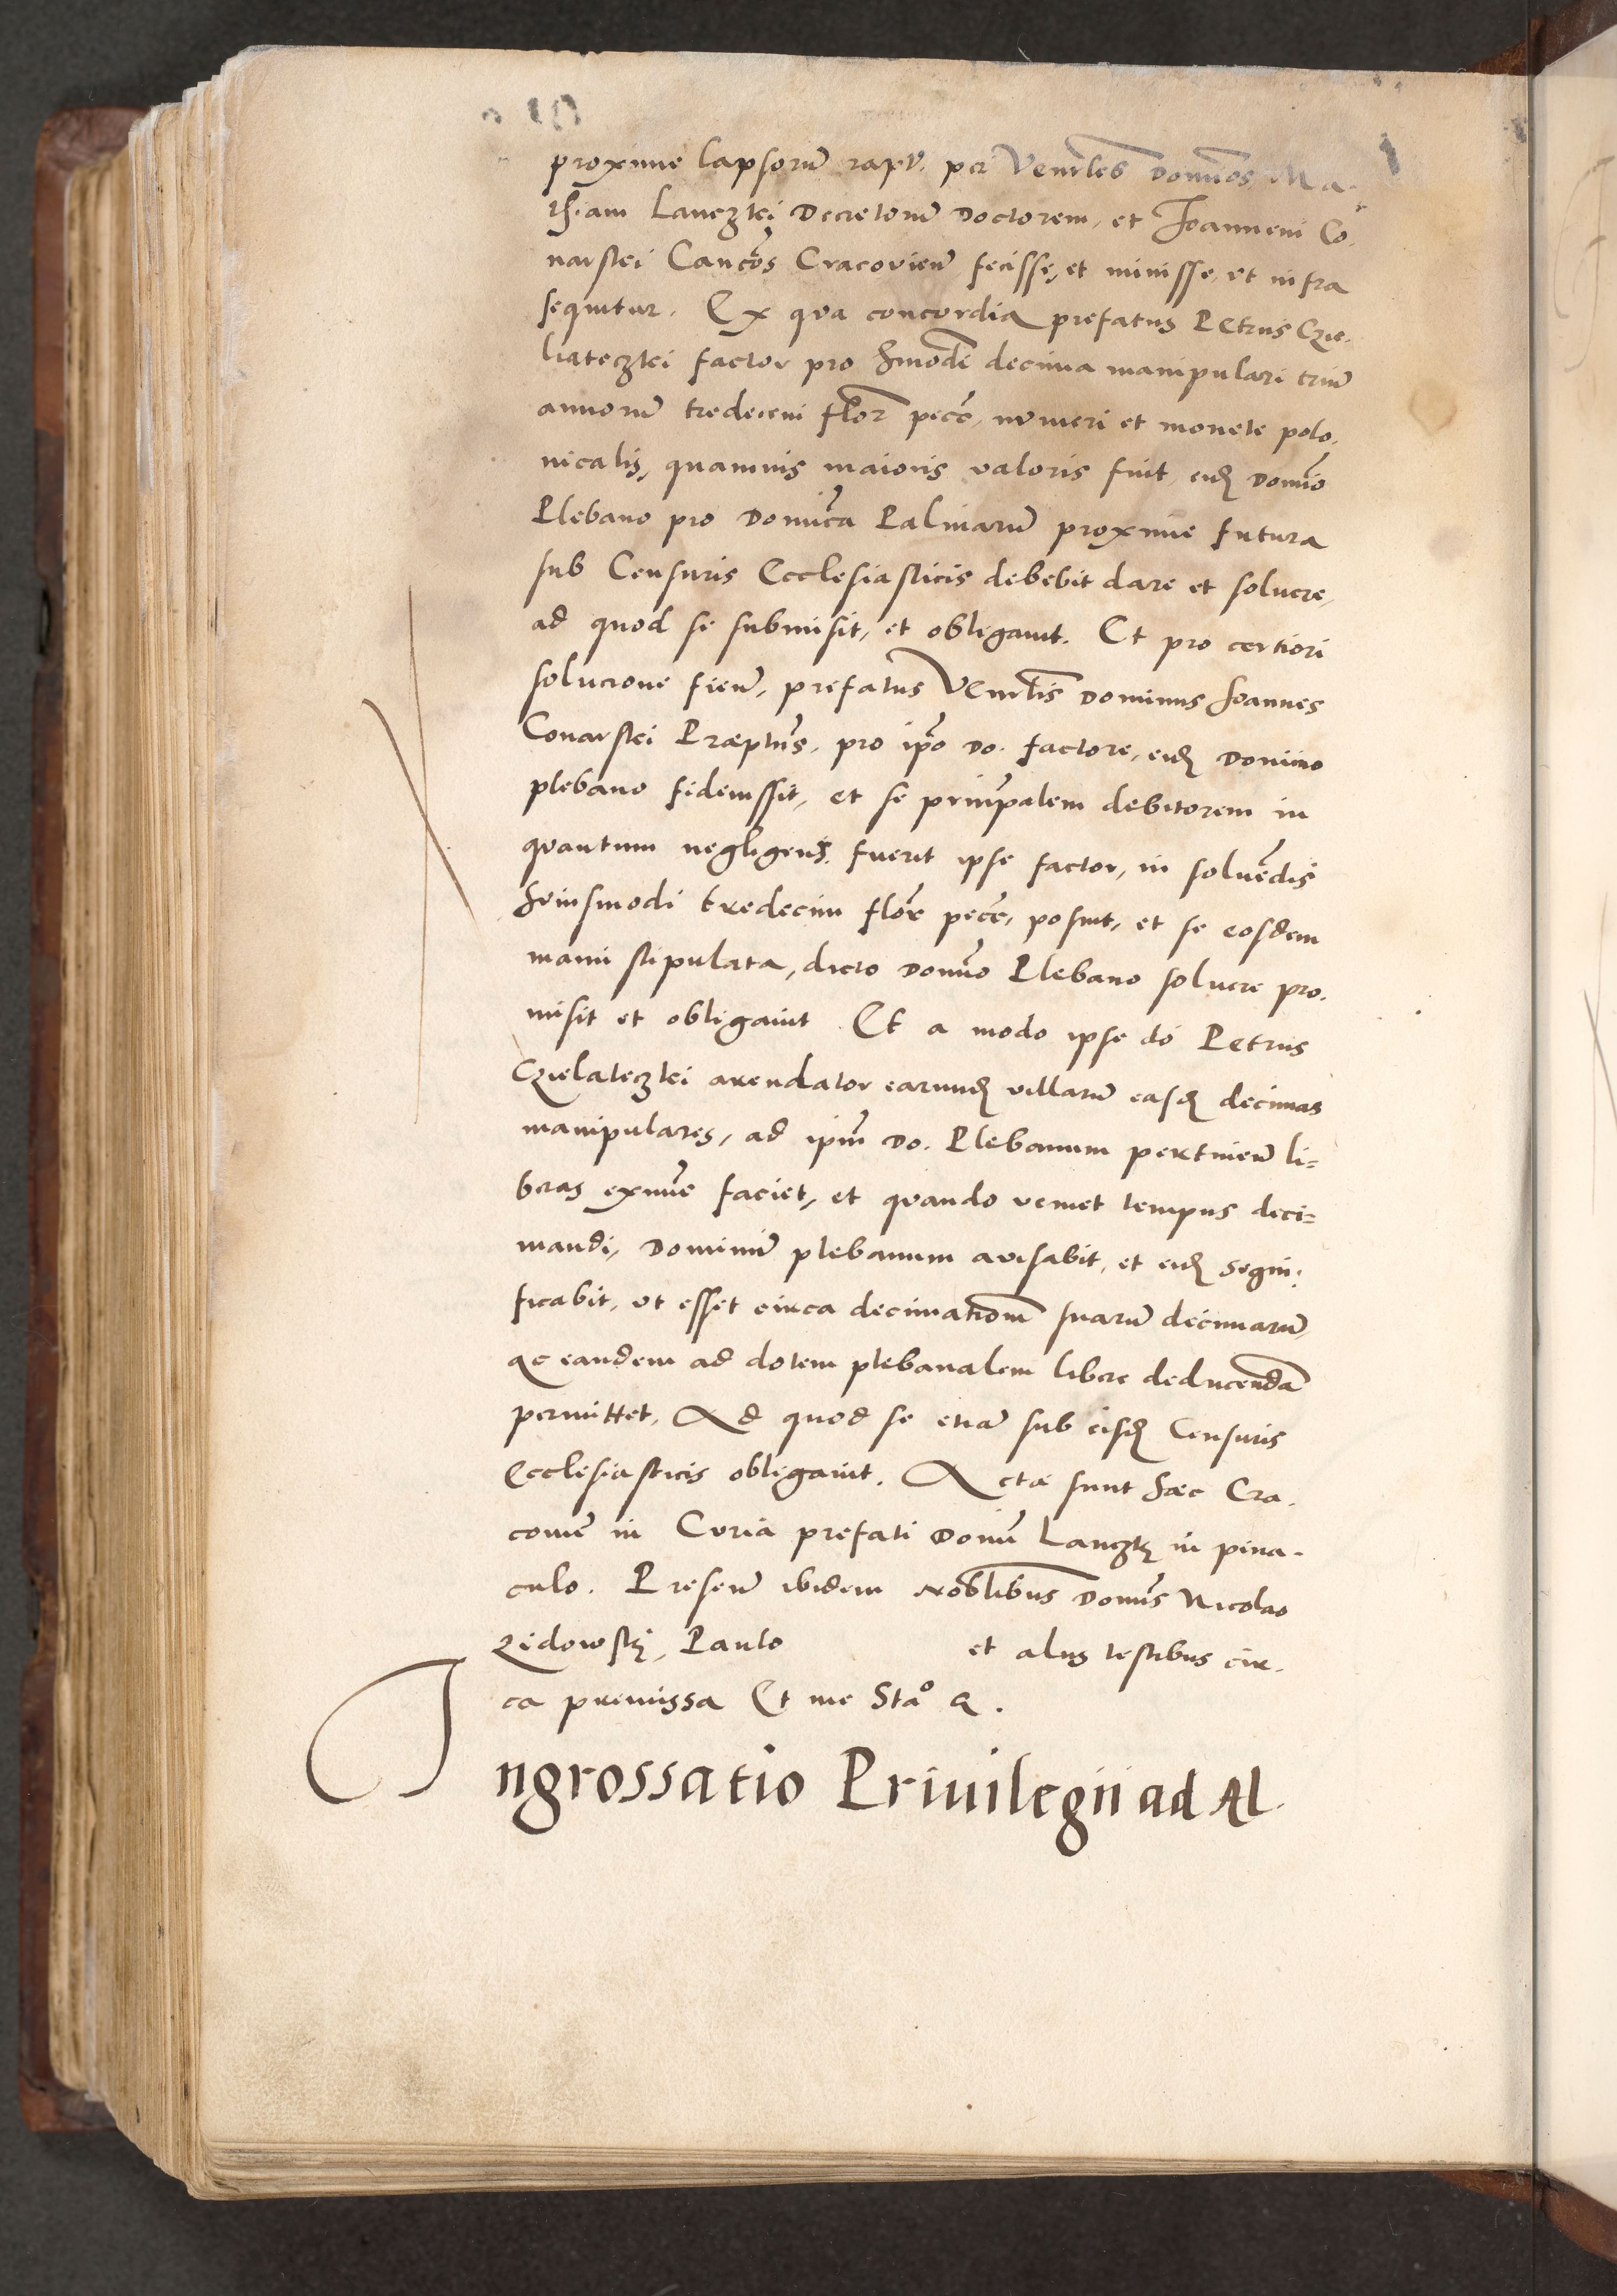 proxime lapsorũ rapt. per Venrłes Domĩos Ma-
thiam Lanczkj Decretorũ Doctorem, et Joannem Co-
narskj Cancõs Cracovieñ fecisse, et iniisse, ut infra
sequitur. Ex qua concordia prefatus Petrus Czie-
liateczkj factor pro hmodi decima manipulari triũ
annorũ tredecim flor pecẽ, numeri et monete polo-
nicalis, quamuis maioris valoris fuit, eidẽ Domĩo
Plebano pro Dominĩca Palmarũ proxime futura
sub Censuris Ecclesiasticis debebit dare et soluere,
ad quod se submisit, et obligauit. Et pro certiori
solucione fieñ, prefatus Venrłis Dominus Joannes
Conarskj Præptũs, pro ipõ Do. factore, eidẽ Domino
plebano fideiussit, et se prinĩpalem debitorem in
quantum negligens fuerit ipse factor, in soluẽdis
huiusmodi tredecim flor pecẽ, posuit, et se eosdem
manu stipulata, dicto Domĩo Plebano soluere pro-
misit et obligauit Et a modo ipse do Petrus
Czielateczkj arendator earundẽ villarũ easdẽ decimas
manipulares, ad ipm̃ Do. Plebanum pertineñ li=
beras exnũc faciet, et quando veniet tempus deci=
mandi, Dominũ plebanum avisabit, et eidẽ Segni-
ficabit, ut esset circa decimationẽ suarũ decimarũ,
ac eandem ad dotem plebanalem libere deducendã
permittet, Ad quod se etiã sub eisdẽ Censuris
Ecclesiasticis obligauit. Acta sunt hæc Cra-
couiẽ in Curia prefati Domĩ Lanczkj in pina-
culo. Preseñ ibidem Nobłibus Domĩs Nicolao
Zidowskj, Paulo et alijs testibus cir-
ca premissa Et me Stãº &.
Ingrossatio Priuilegii ad Al-